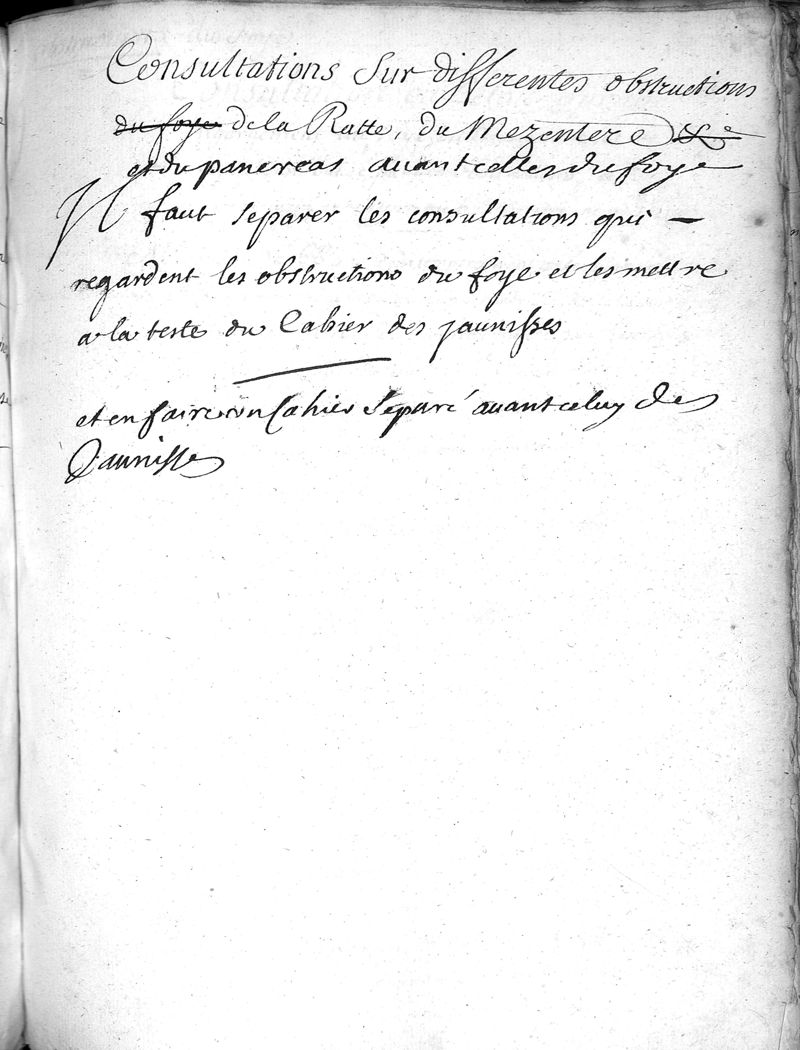 Consultations sur differentes obstructions
du foye de la Ratte, du Mezentere &c
et du pancreas avant celles du foye
Il faut separer les consultations qui —
regardent les obstructions du foye et les mettre
a la teste du Cahier des jaunisses
et en faire un Cahier separé avant celuy de
Jaunisse